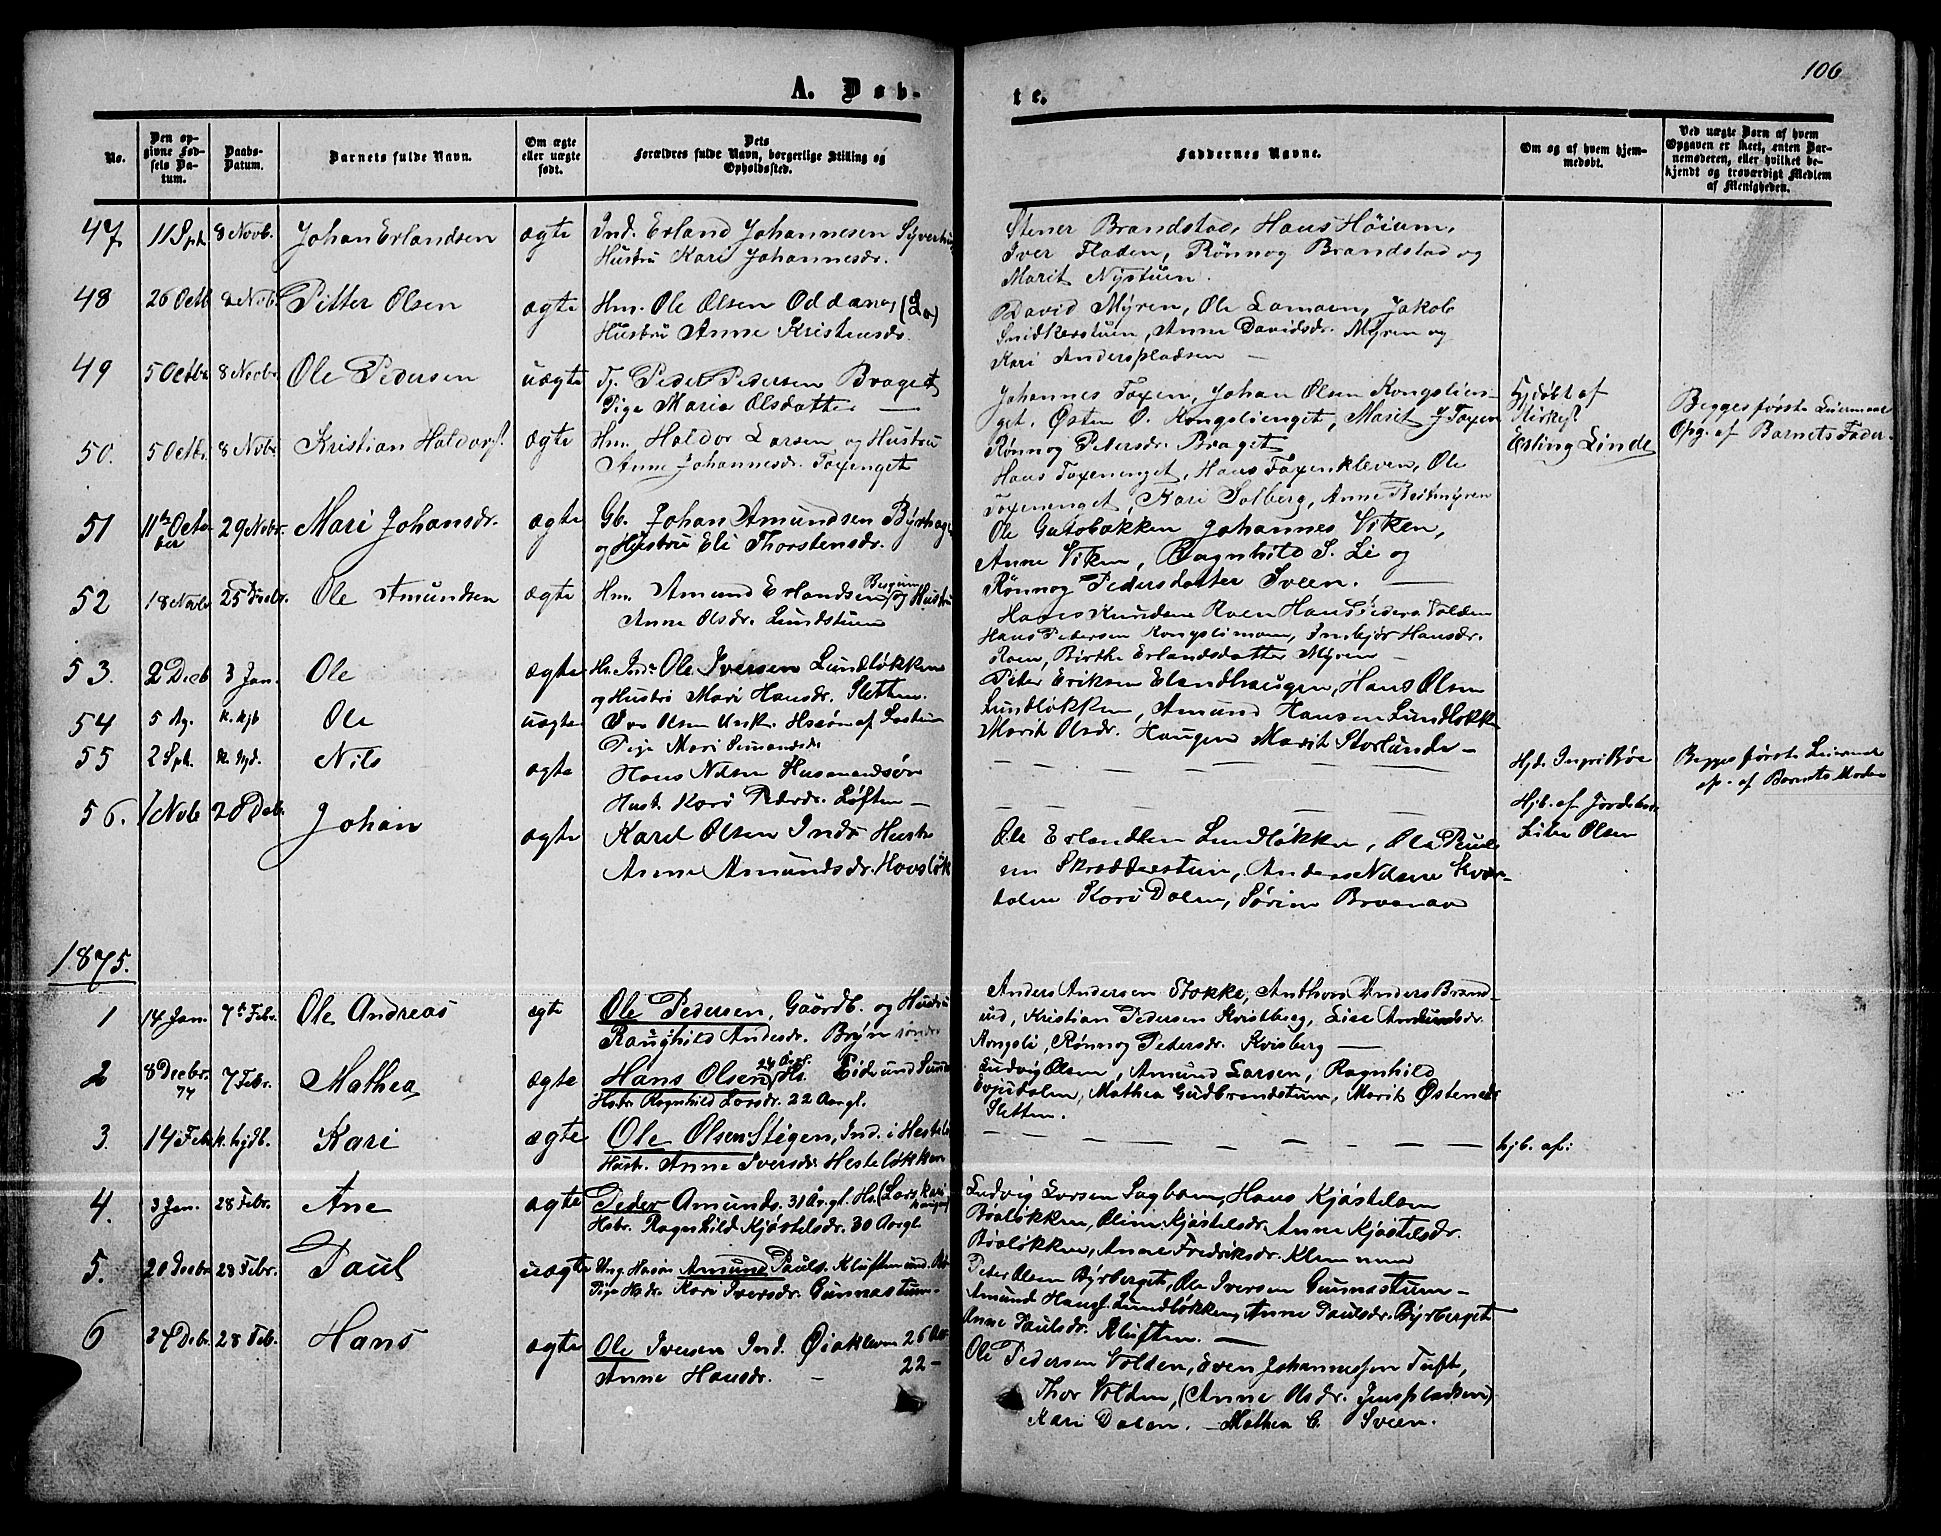 106
A. Døb-
te.
No.
Den op-
givne Fød-
sels Da-
tum.
Daabs-
Datum.
Barnets fulde Navn.
Om ægte
eller uægte
født.
Dets
Forældres fulde Navn, borgerlige Stilling og
Opholdssted.
Faddernes Navne.
Om og af hvem hjem-
medøbt.
Ved uægte Barn af hvem
Opgaven er skeet, enten Bar-
nemoderen, eller hvilket be-
kjendt og troværdigt Medlem
af Menigheden.
47 11 Spt. 8 Novb. Johan Erlandsen ægte Ind. Erland Johannesen
Hustru Kari Johannesdr.
Stener Brandstad, Hans Høium,
Iver Fladen, Rønnog Brandstad og
Marit Nystuen.
48 26 Octb 8 Nob. Pitter Olsen ægte Hm. Ole Olsen Oddanes (Lo)
Hustru Anne Kristensdr.
David Myren, Ole Lomoen, Jakob
Snidkerstuen, Anne Davidsdr. Myren og
Kari Anderspladsen —
49 5 Octbr 8 Novbr. Ole Pedersen uægte Tj. Peder Pedersen Braget
Pige Maria Olsdatter —
Johannes Foxen, Johan Olsen Kongslien-
get, Østen O. Kongslienget, Marit J Foxen
Rønnog Pedersdr. Braget
Hjdøbt af
Kirkes.
Erling Linde
Begges første Leiermaal
Opg. af Barnets Fader.
50. 5 Octbr. 8 Nobr Kristian Haldors. ægte Hm. Haldor Larsen og Hustru
Anne Johannesdr. Foxenget
Hans Foxenenget, Hans Foxenkleven, Ole
Foxenenget, Kari Solberg, Anne Breitmyren
51 11te Octo
ber 29 Nobr. Mari Johansdr. ægte Gb. Johan Amundsen Byrhage
og Hustru Eli Thorstensdr.
Ole Gutobakken Johannes Viken,
Anne Viken, Ragnhild S. Li og
Rønnog Pedersdatter Sveen. —
52 18 Nobr 25 Ole Amundsen ægte Hm. Amund Erlandsen og Hustru
Anne Olsdr. Lundstuen
Hans Knudsen Roen Hans Peders Volden
Hans Pedersen Kongslimoen, Inebjør Hansdr.
Roen, Birthe Erlandsdatter Myren —
53. 2 Decb 3 Jan. Ole ægte Hs. Ind. Ole Iversen Lundløkken
og Hustru Mari Hansdr. Sletten.
Peter Eriksen Elandhaugen, Hans Olsen
Lundløkken, Amund Hansen Lundløkken
Marit Olsdr. Haugen Marit Storlunde —
54 5 Ag. k. Hjb Ole uægte Iver Olsen Unk. Hssøn af
Pige Mari Simonsdr
— — — — — —
Hjd. Ingri Bøe
Begges første Leiermaal
op. af Barnets Moder
55 2 Spt. k. Hjd. Nils ægte Hans Nilsen Husmandsøn
Hust. Kari Pedersdr. Løften —
— — — — — —
Hjb. af Jordebor.
Lisbe Olsen
56. 1 Nob 28 Deb. Johan ægte Karel Olsen Inds Hustr
Anne Amundsdr. Hovsløk
Ole Erlandsen Lundløkken, Ole Paul
en Skrædderstuen, Anders Nilsen Kvær-
dolen Kari Dalen, Sørine
1875.
1 14 Jan. 7de Febr. Ole Andreas ægte Ole Pedersen, Gaardb. og Hustru
Raughild Andesdr. Bryn søndre
Anders Andersen Stokke, Anthon Anders Brand-
und, Kristian Pedersen Kvistberg, Lise Amundsdr.
Kongsli, Rønnog Pedersdr. Kvisberg —
2 8 Decbr.
74 7 Febr. Mathea ægte Hans Olsen 24 Aargl. Hs. Eide und Sund
Hstr. Ragnhild Larsdr. 22 Aargl.
Ludvig Olsen, Amund Larsen, Ragnhild
Evjudalen, Mathea Gudbrandstuen, Marit Østensdr
Sletten.
3. 14 Feb k. hjdb. Kari ægte Ole Olsen Stigen, Ind. i Hestel
Hust. Anne Iversdr. Hesteløkken
— — — — — —
hjb. af:
4. 3 Jan. 28 Febr. Ane ægte Peder Amunds. 31 Aargl. Hs. (Lars kari
haugen)
Hstr. Ragnhild Kjøstelsdr. 30 Aargl.
Ludvig Larsen Sagboen, Hans Kjøstelsen
Bøaløkken, Oline Kjøstelsdr. Anne Kjøstelsdr.
Bøaløkken, Anne Fredriksdr. Klemmen
5. 20 Decbr 28 Febr. Paul uægte Ung. Hssøn Amund Pauls. Kluften und.
Pige Hsdr. Kari Iversdr. Gunnastuen.
Peter Olsen Byrberget, Ole Iversen Gunnastuen —
Amund Haugl. Lundløkken, Anne Paulsdr. Byrberget
Anne Paulsdr. Kluften. —
6 24 Debr. 28 Feb. Hans ægte Ole Iversen Ind. Øiakleven 26 Aar
Anne Hansdr. — 22 —
Ole Pedersen Volden, Even Johannessen Tuft,
Thor Volden, (Anne Olsdr. Jenspladsen)
Kari Dalen. — Mathea C. Sveen.